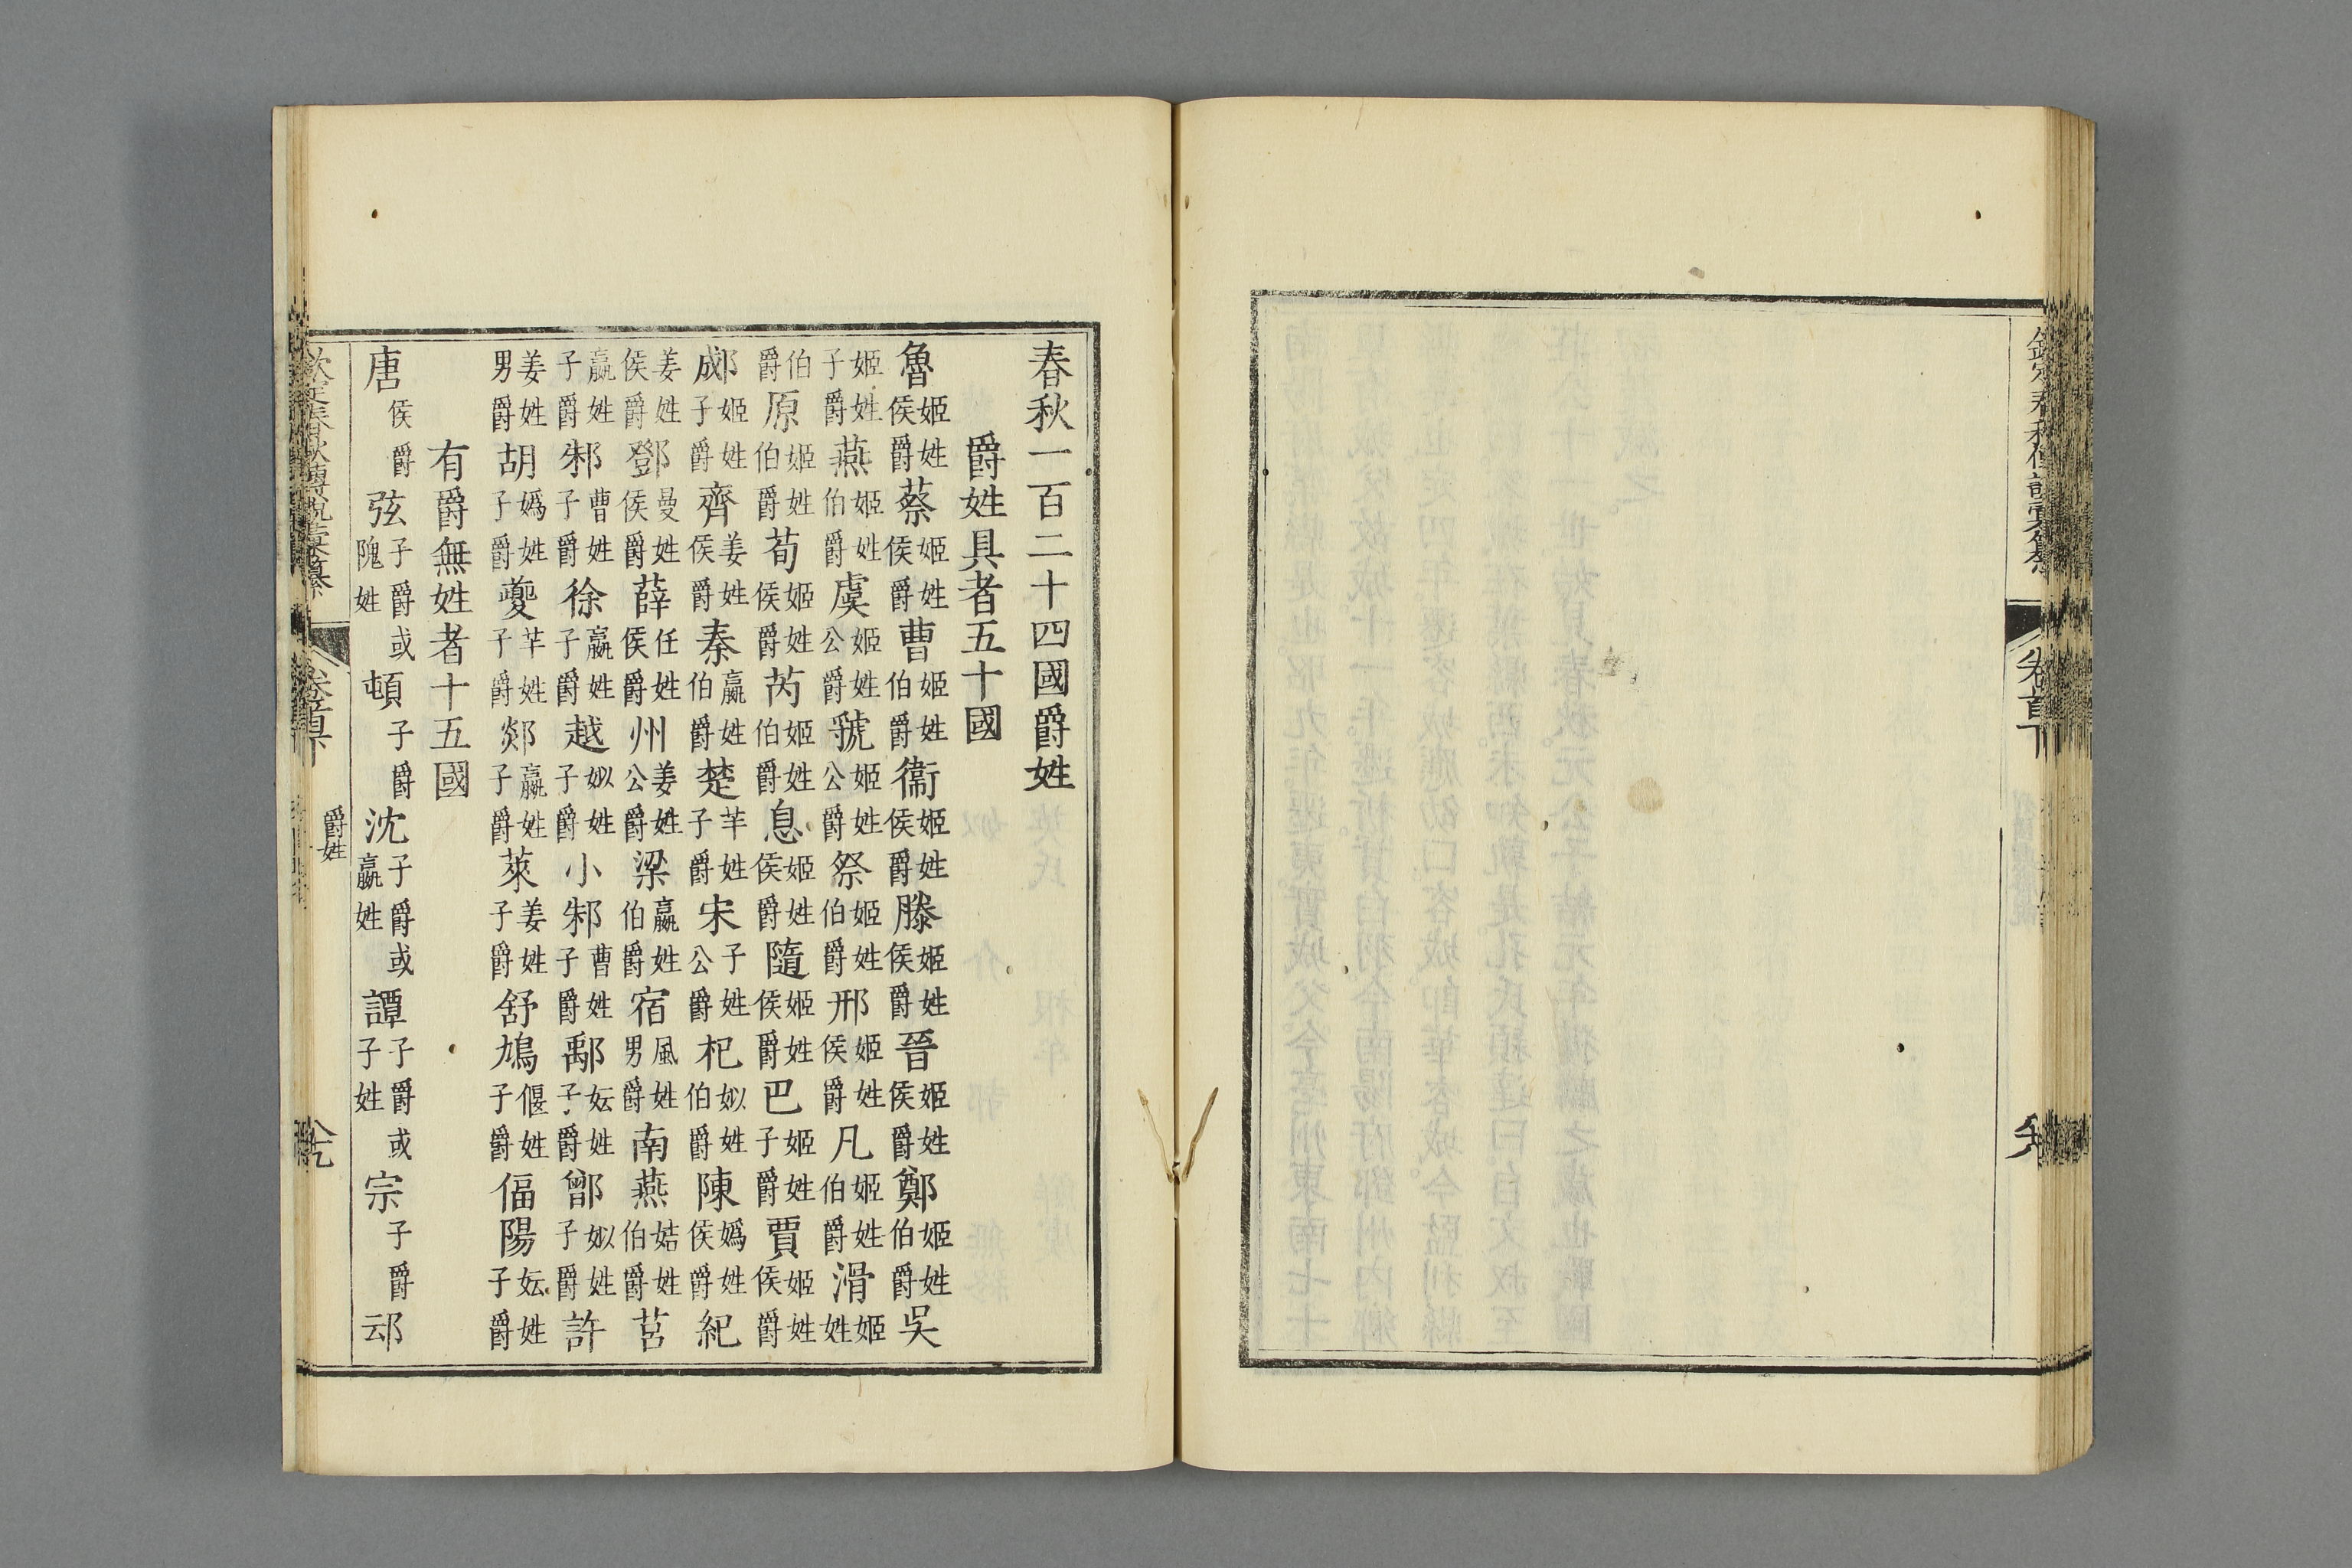 卷首下
春秋一百二十四國爵姓
爵姓具者五十國
魯姬姓侯爵蔡姬姓侯爵曹姬姓伯爵衞姬姓侯爵滕姬姓侯爵晉姬姓侯爵鄭姬姓伯爵吳
姬姓子爵燕姬姓伯爵虞姬姓公爵虢姬姓公爵祭姬姓伯爵邢姬姓侯爵凡姬姓伯爵滑姬姓
伯爵原姬姓伯爵荀姬姓侯爵芮姬姓伯爵息姬姓侯爵隨姬姓侯爵巴姬姓子爵賈姬姓侯爵
郕姬姓子爵齊姜姓侯爵秦嬴姓伯爵楚芈姓子爵宋子姓公爵杞姒姓伯爵陳媯姓侯爵紀
姜姓侯爵鄧曼姓侯爵薛任姓侯爵州姜姓公爵梁嬴姓伯爵宿風姓男爵南燕姞姓伯爵莒
嬴姓子爵邾曹姓子爵徐嬴姓子爵越姒姓子爵小邾曹姓子爵鄅妘姓子爵鄫姒姓子爵許
姜姓男爵胡媯姓子爵夔芈姓子爵郯嬴姓子爵萊姜姓子爵舒鳩偃姓子爵偪陽妘姓子爵
有爵無姓者十五國
唐侯爵弦子爵或隗姓頓子爵沈子爵或嬴姓譚子爵或子姓宗子爵䢵
欽定春秋傳說彙纂 卷首下 爵姓